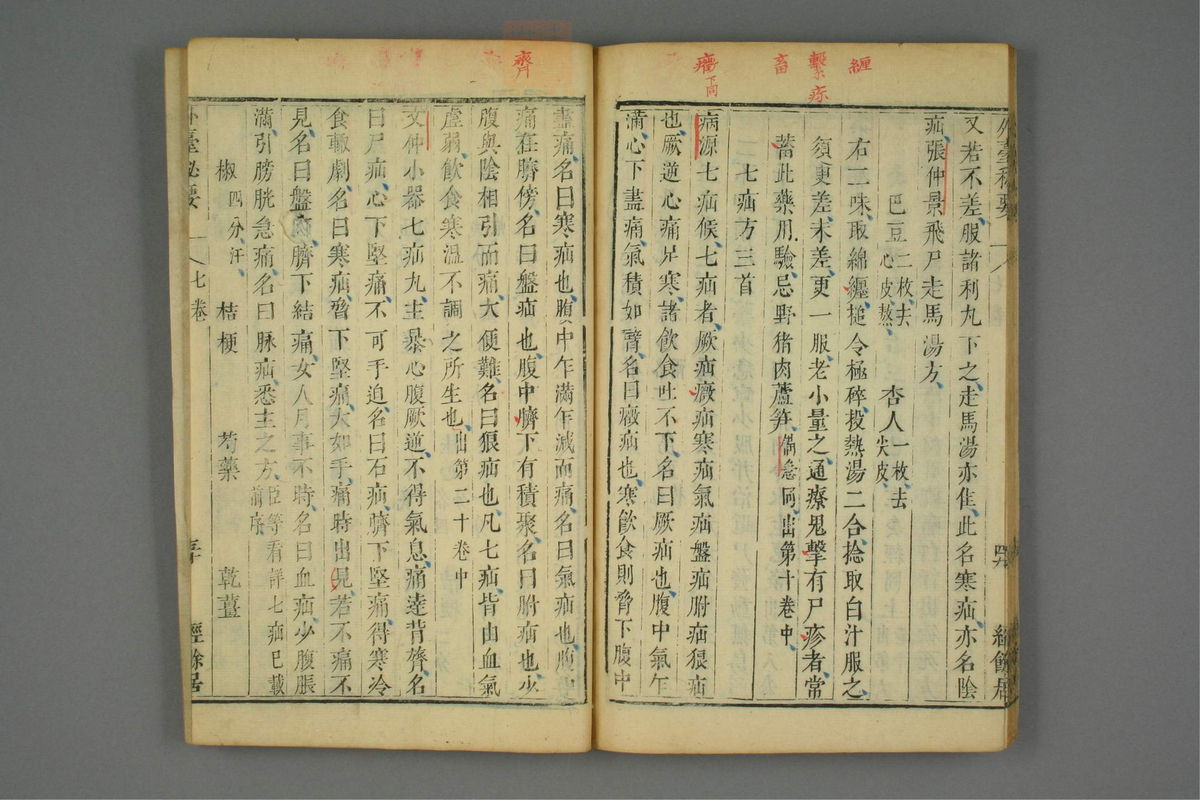 纏
繫疹
畜
癥下同
齊
外臺秘要
四九
經餘居
又若不差服諸利丸下之走馬湯亦佳此名寒疝亦名陰
疝張仲景飛尸走馬湯方
巴豆二枚去心皮熬 杏人一枚去尖皮
右二味取綿纏搥令極碎投熱湯二合捻取白汁服之
須更差未差更一服老小量之通療鬼擊有尸疹者常
蓄此藥用驗忌野猪肉蘆笋備急同出第十卷中
七疝方三首
病源七疝候七疝者厥疝癥疝寒疝氣疝盤疝胕疝狼疝
也厥逆心痛足寒諸飲食吐不下名曰厥疝也腹中氣乍
滿心下盡痛氣積如臂名曰癥疝也寒飲食則脅下腹中
盡痛名曰寒疝也腹中乍滿乍減而痛名曰氣疝也腹中
痛在臍傍名曰盤疝也腹中臍下有積聚名曰胕疝也少
腹與陰相引而痛大便難名曰狼疝也凡七疝皆由血氣
虛弱飲食寒溫不調之所生也出第二十卷中
文仲小器七疝丸主暴心腹厥逆不得氣息痛達背膂名
曰尸疝心下堅痛不可手迫名曰石疝臍下堅痛得寒冷
食輒劇名曰寒疝脅下堅痛大如手痛時出見若不痛不
見名曰盤疝臍下結痛女人月事不時名曰血疝少腹脹
滿引膀胱急痛名曰脉疝悉主之方臣等看詳七疝已載前序
椒四分汗 桔梗 芍藥 乾薑
外臺秘要
七卷
五十
經餘居